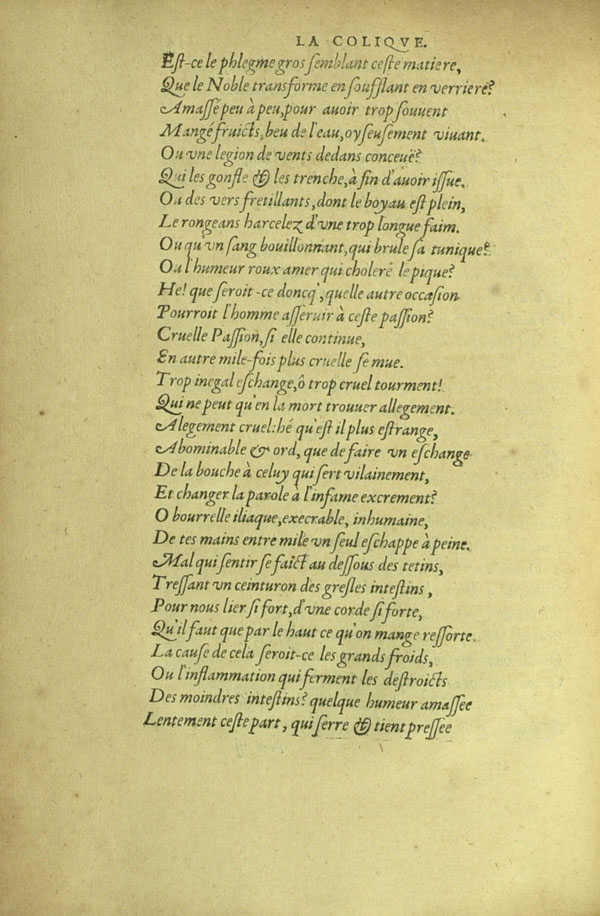 LA COLIQVE.
Est-ce le phlegme gros semblant ceste matiere,
Que le Noble transforme en soufflant en verriere?
Amassé peu à peu, pour auoir trop souuent
Mangé fruicts, beu de l'eau, oyseusement viuant.
Ou vne legion de vents dedans conceuë?
Qui les gonfle & les trenche, à fin d'auoir issue.
Ou des vers fretillants, dont le boyau est plein,
Le rongeans harcelez d'vne trop longue faim.
Ou qu'vn sang bouillonnant, qui brule sa tunique?
Ou l'humeur roux amer qui choleré le pique?
He! que seroit-ce doncq', quelle autre occasion
Pourroit l'homme asseruir à ceste passion?
Cruelle Passion, si elle continue,
En autre mile-fois plus cruelle se mue.
Trop inegal eschange, ô trop cruel tourment!
Qui ne peut qu'en la mort trouuer allegement.
Alegement cruel: hé qu'est il plus estrange,
Abominable & ord, que de faire vn eschange
De la bouche à celuy qui sert vilainement,
Et changer la parole à l'infame excrement?
O bourrelle iliaque, execrable, inhumaine,
De tes mains entre mile vn seul eschappe à peine.
Mal qui sentir se faict au dessous des tetins,
Tressant vn ceinturon des gresles intestins,
Pour nous lier si fort, d'vne corde si forte,
Qu'il faut que par le haut ce qu'on mange ressorte.
La cause de cela seroit-ce les grands froids,
Ou l'inflammation qui ferment les destroicts
Des moindres intestins? quelque humeur amassee
Lentement ceste part, qui serre & tient pressee